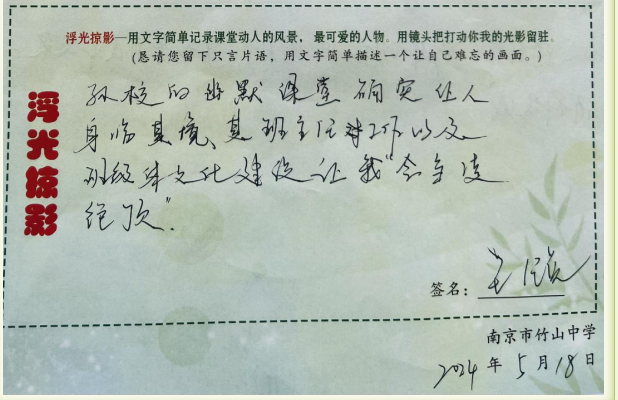 浮光掠影—用文字简单记录课堂动人的风景，最可爱的人物。用镜头把打动你我的光影留驻。
（恳请您留下只言片语，用文字简单描述一个让自己难忘的画面。）
浮光掠影
孙校的幽默课堂确实让人
身临其境、其班主任工作以及
班级体文化建设让我“会当凌
绝顶”.
签名：
南京市竹山中学
2024年5月18日